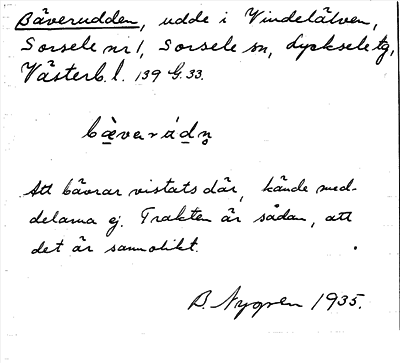 Bäverudden, udde i Vindelälven,
Sorsele nr 1, Sorsele sn, Lycksele tg,
Västerb. l. 139 G. 33.
bæ̀verúdn̥
Att bävrar vistats där, kände med-
delarna ej. Trakten är sådan, att
det är sannolikt.
B. Nygren 1935.